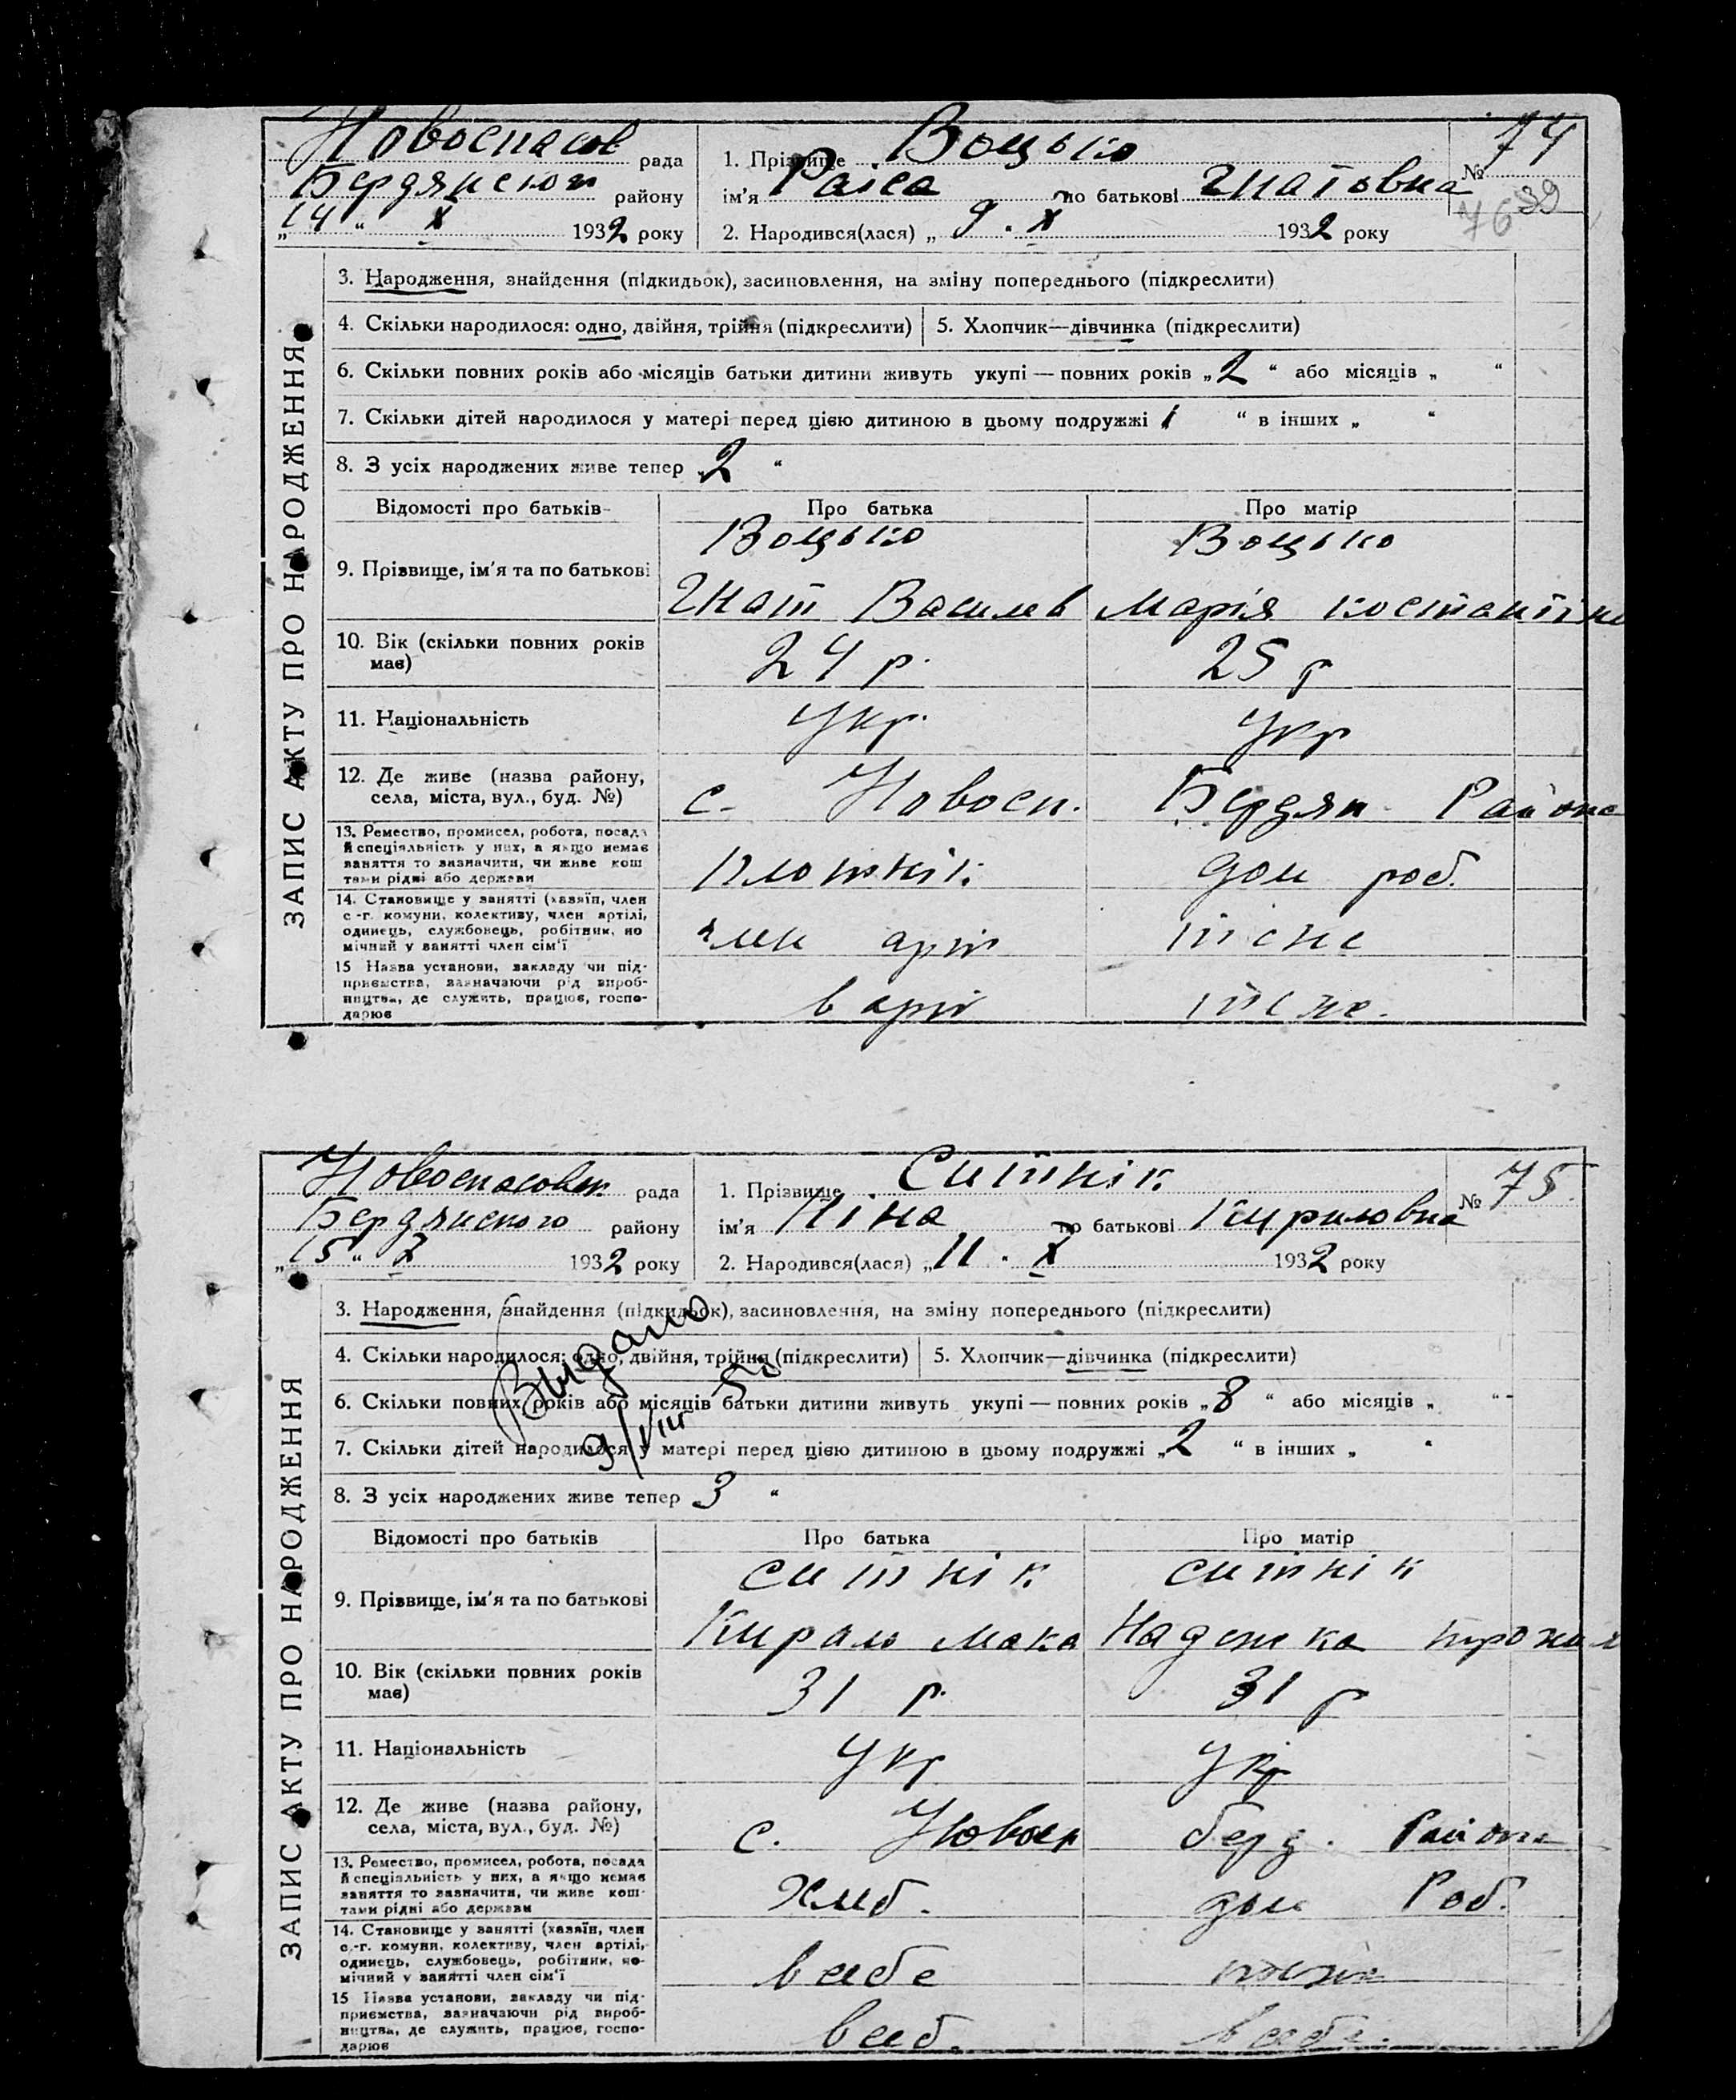 Новоспасов рада
Бердянског району
„14“ X 1932 року
1. Прізвище Воцько
ім'я Раіса по батькові Гнатовна
2. Народився(лася) „9. X 1932 року
№ 74
7639
ЗАПИС АКТУ ПРО НАРОДЖЕННЯ
3. Народження, знайдення (підкидьок), засиновлення, на зміну попереднього (підкреслити)
4. Скільки народилося: одно, двійня, трійня (підкреслити) 5. Хлопчик—дівчинка (підкреслити)
6. Скільки повних років або місяців батьки дитини живуть укупі — повних років „2“ або місяців „ “
7. Скільки дітей народилося у матері перед цією дитиною в цьому подружжі 1 “ в інших „ “
8. З усіх народжених живе тепер „2“
Відомості про батьків Про батька Про матір
Воцько Воцько
9. Прізвище, ім'я та по батькові
Гнат Василев Марія Костантіно
10. Вік (скільки повних років має) 24 р. 25 р
11. Національність Укр. Укр
12. Де живе (назва району, села, міста, вул., буд. №) с. Новосп. Бердян Району
13. Ремество, промисел, робота, посада й спеціяльність у них, а якщо немає заняття то зазначити, чи живе коштами рідні або держави плотнік дом роб.
14. Становище у занятті (хазяїн, член с.-г. комуни, колективу, член артілі, одинець, службовець, робітник, помічний у занятті член сім'ї член арт тісне
15 Назва установи, закладу чи підприємства, зазначаючи рід виробництва, де служить, працює, господарює в арт тісне.
Новоспасовск. рада
Бердянского району
„15“ X 1932 року
1. Прізвище Ситнік
ім'я Ніна по батькові Кириловна
2. Народився(лася) „11. X 1932 року
№ 75.
ЗАПИС АКТУ ПРО НАРОДЖЕННЯ
3. Народження, знайдення (підкидьок), засиновлення, на зміну попереднього (підкреслити)
4. Скільки народилося: одно, двійня, трійня (підкреслити) 5. Хлопчик—дівчинка (підкреслити)
Выдано
9/VIII 50
6. Скільки повних років або місяців батьки дитини живуть укупі — повних років „8“ або місяців „ “
7. Скільки дітей народилося у матері перед цією дитиною в цьому подружжі „2“ в інших „ “
8. З усіх народжених живе тепер 3 “
Відомості про батьків Про батька Про матір
Ситнік Ситнік
9. Прізвище, ім'я та по батькові
Кирало Мака Надежка
10. Вік (скільки повних років має) 31 р. 31 р
11. Національність Укр Укр
12. Де живе (назва району, села, міста, вул., буд. №) с. Новосп берд. Району
13. Ремество, промисел, робота, посада й спеціяльність у них, а якщо немає заняття то зазначити, чи живе коштами рідні або держави Хліб. дом Роб.
14. Становище у занятті (хазяїн, член с.-г. комуни, колективу, член артілі, одинець, службовець, робітник, помічний у занятті член сім'ї в себе
15 Назва установи, закладу чи підприємства, зазначаючи рід виробництва, де служить, працює, господарює в себ. в себе.